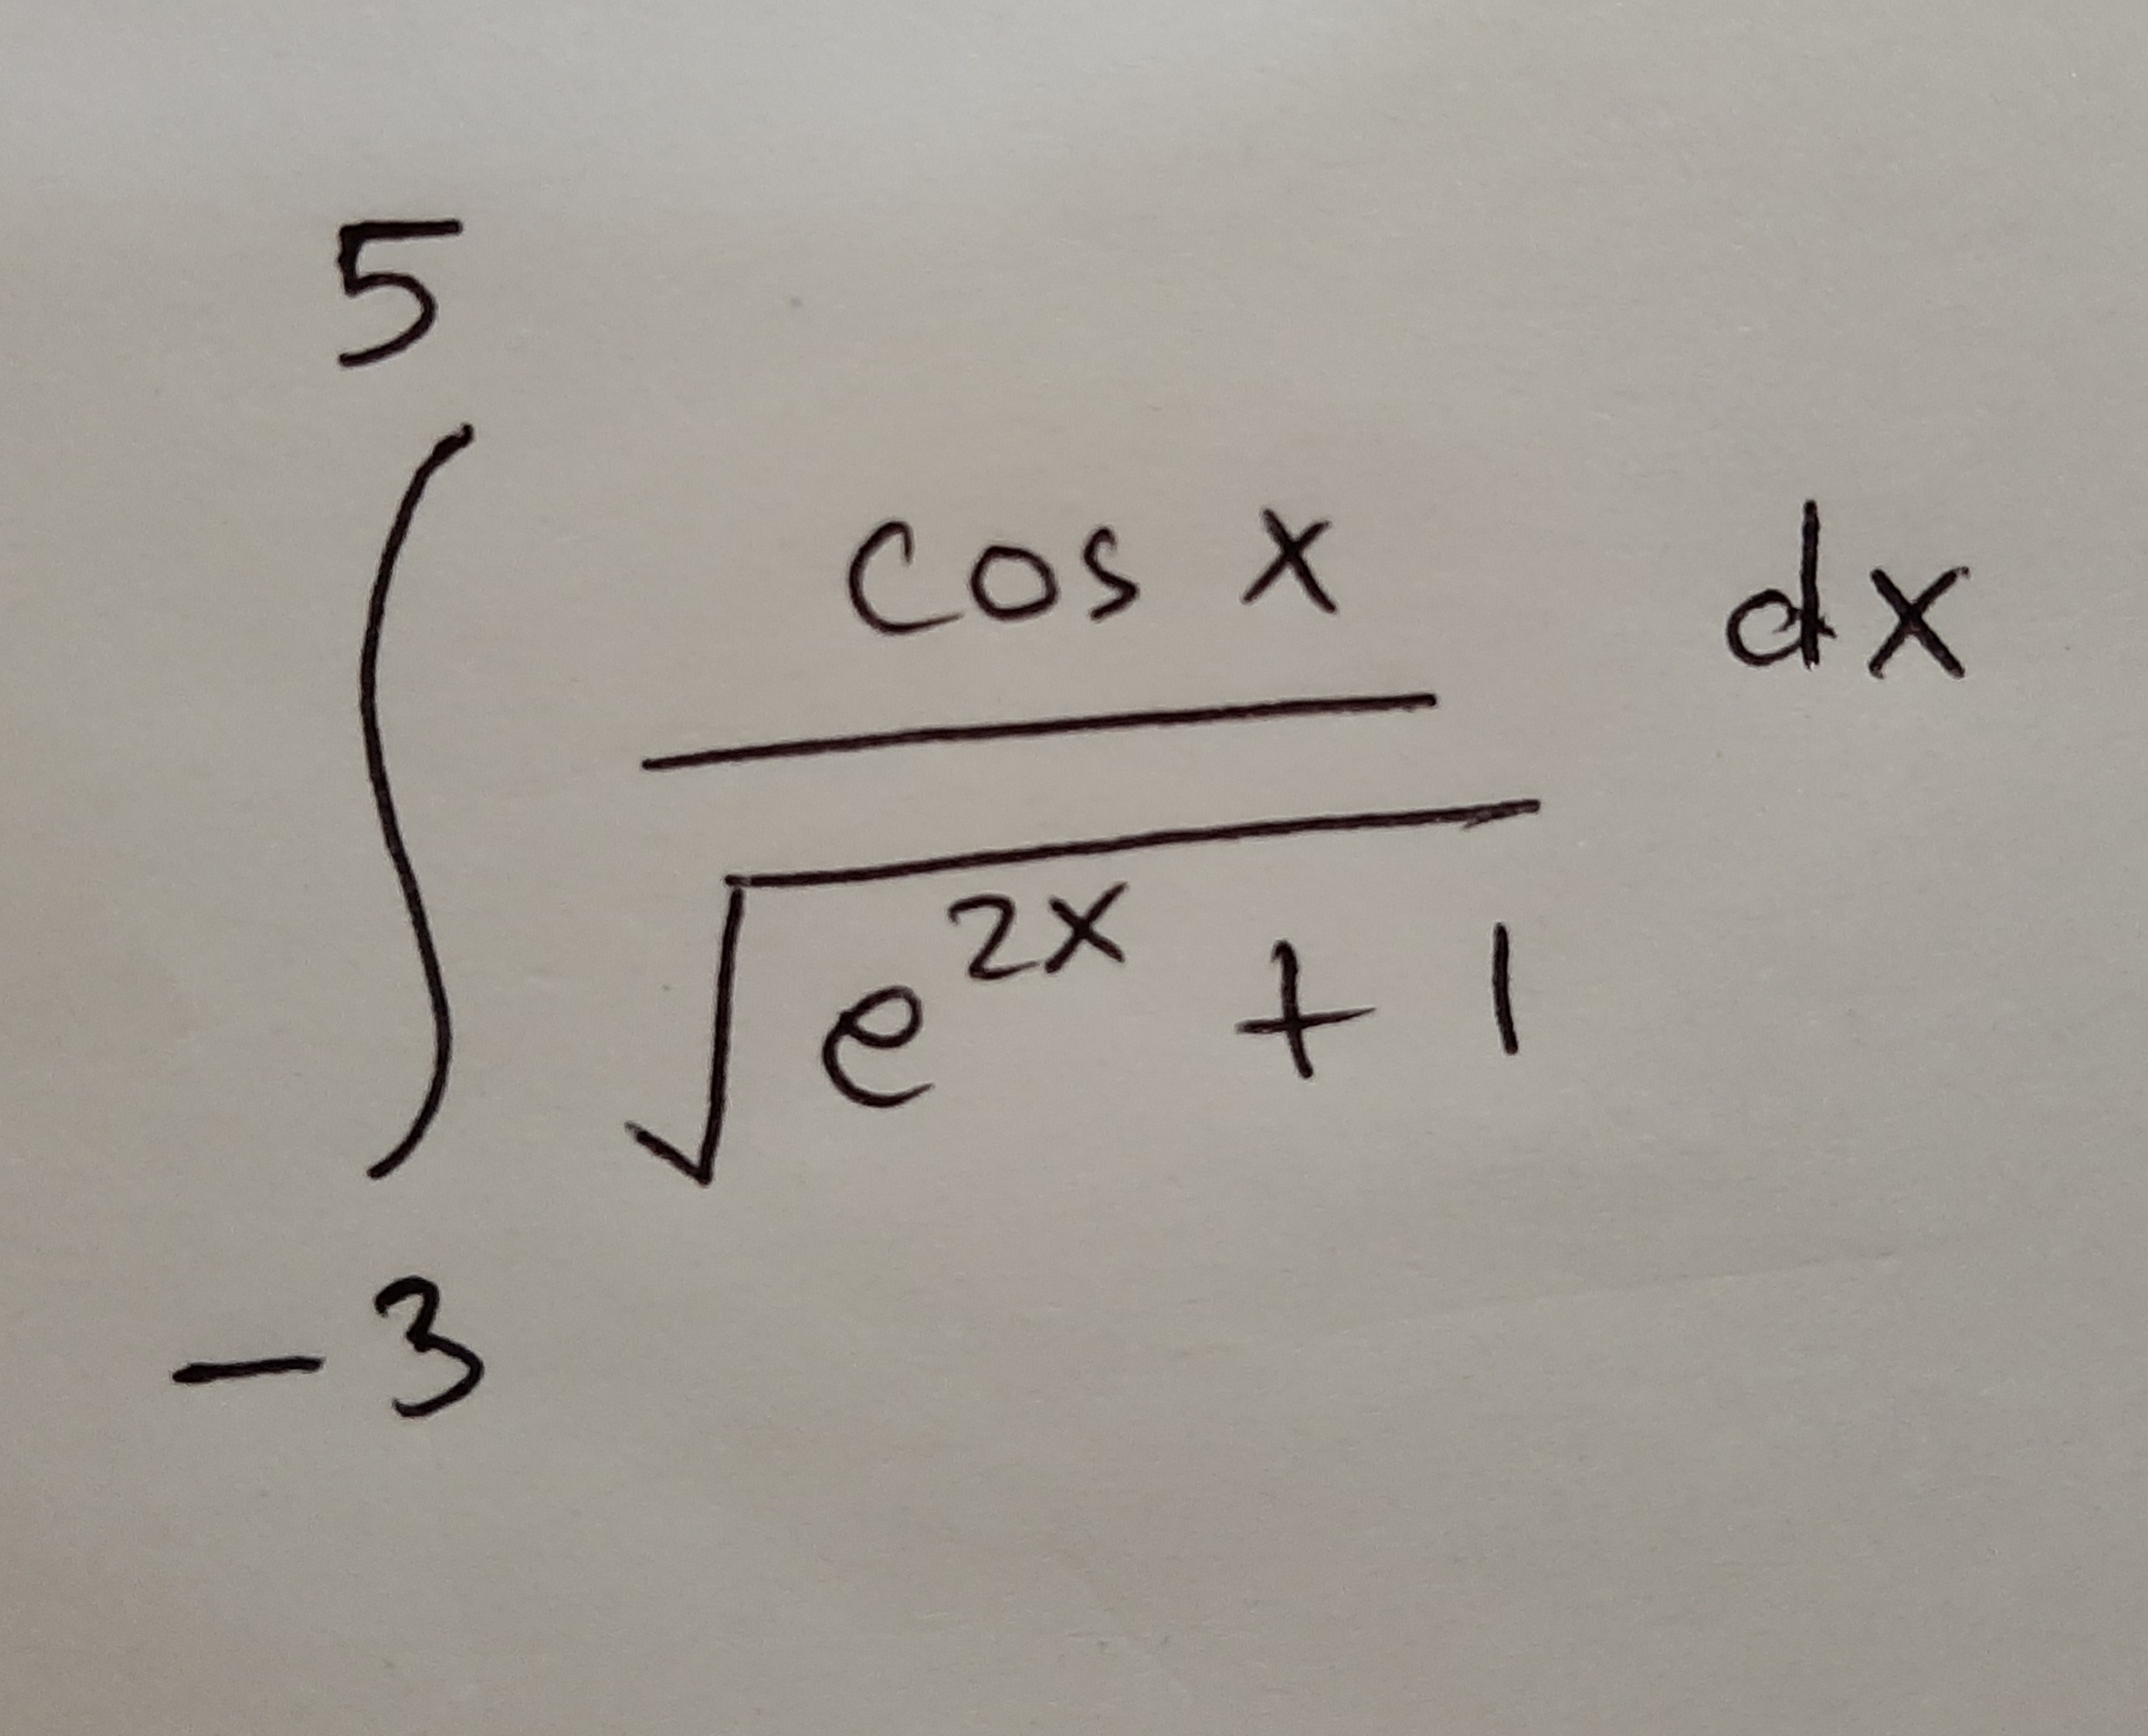 5
∫ cos x / √(e^{2x} + 1) dx
-3